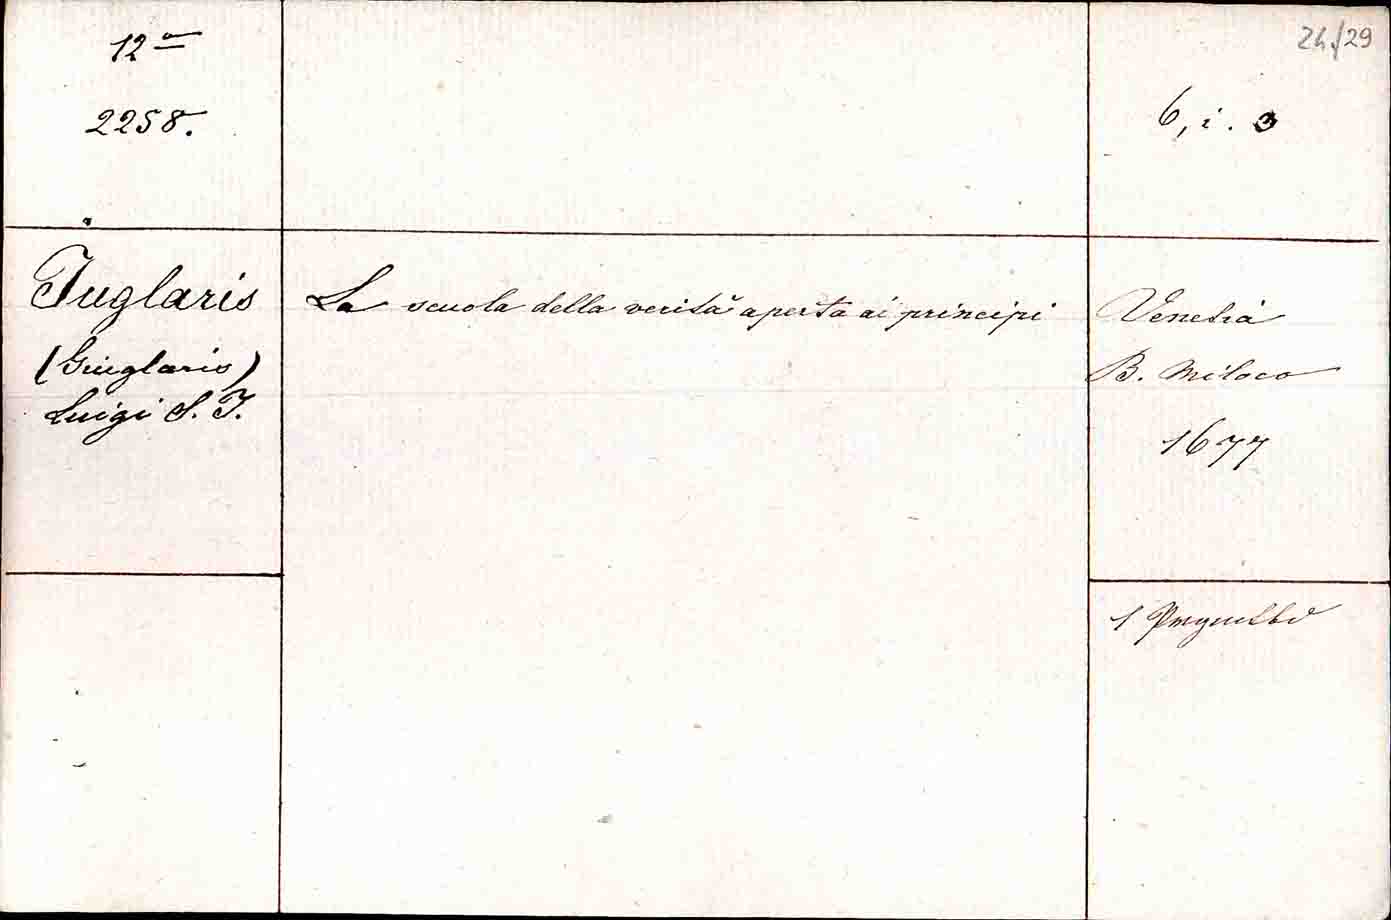 12º
2258.
24/29
6, i. 3
Juglaris
(Giuglaris)
Luigi S. J.
La scuola della verità aperta ai principi
Venetia
B. Miloco
1677
1